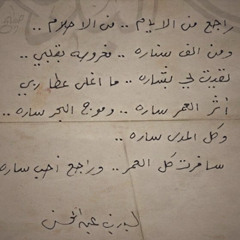 راجع من الايام .. من الاحلام ..
ومن الف ستاره .. مغروسة بقلبي ..
لقيت لي بشاره .. ما اغلى عطا ربي
أثر العمر ساره .. وموج البحر ساره ..
وكل المدى ساره ..
سافرت كل العمر .. وراجع أحب ساره
لبدر بن عبدالمحسن